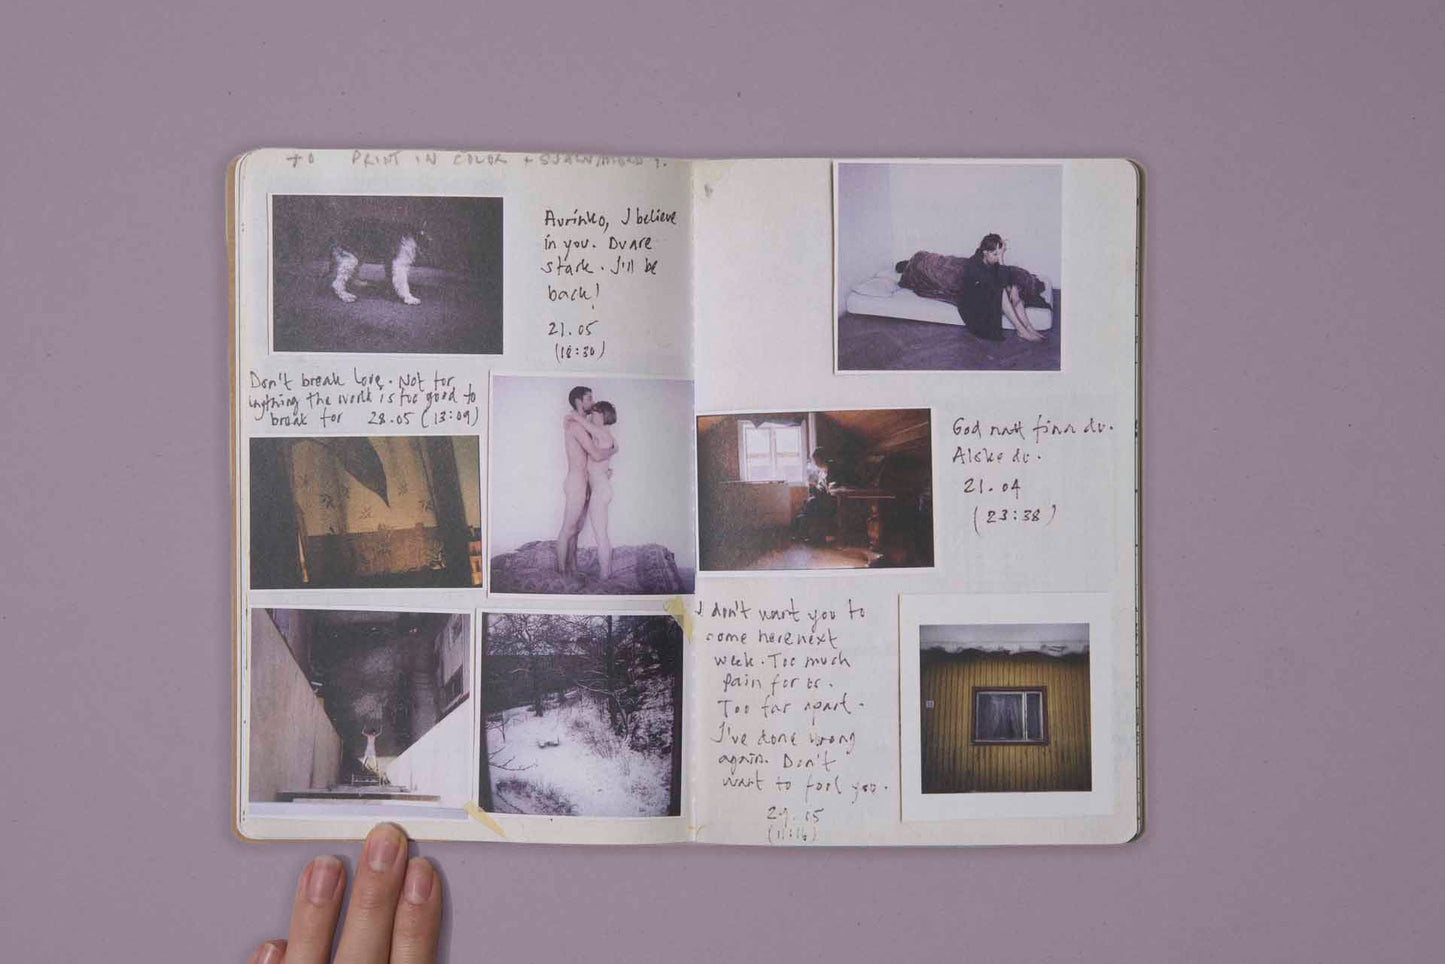 TO PRINT IN COLOR +
Aurinko, I believe
in you. Du are
stark. I'll be
back!
21.05
(18:30)
Don't break love. Not for
anything the world is too good to
break for 28.05 (13:09)
God natt finn du.
Alske du.
21.04
(23:38)
I don't want you to
come here next
week. Too much
pain for us.
Too far apart.
I've done wrong
again. Don't
want to fool you.
29.05
(11:16)